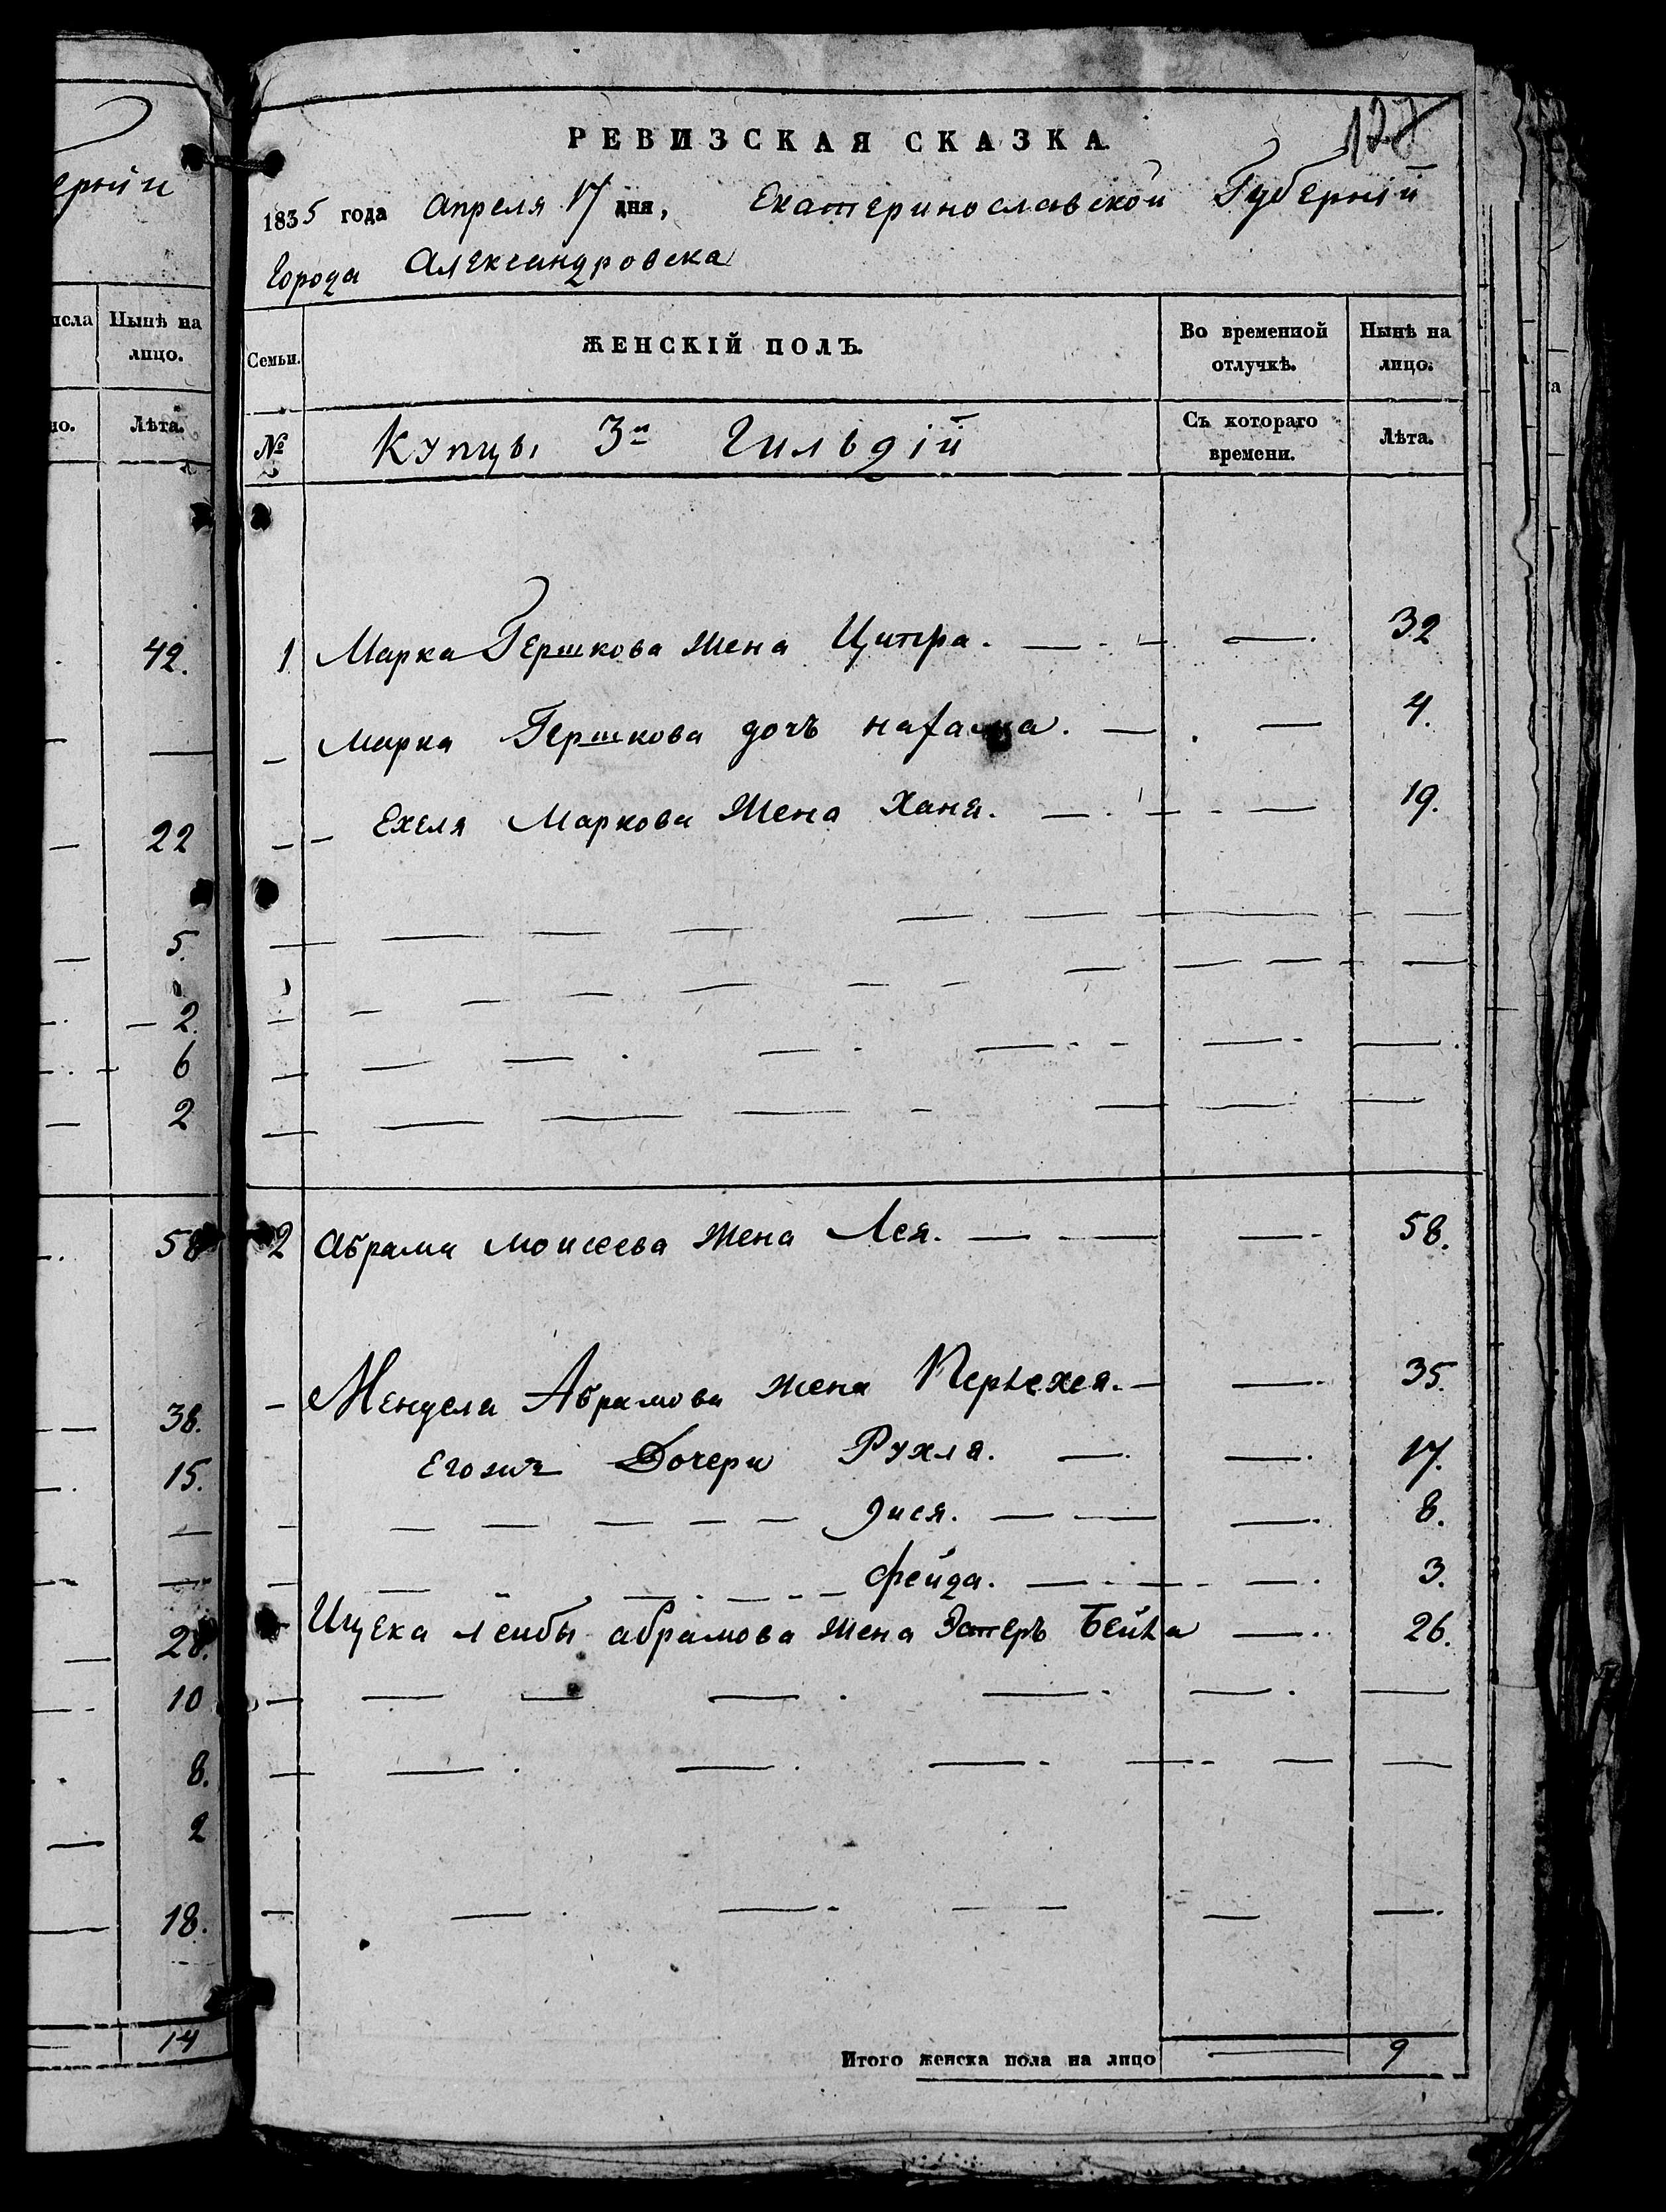 ерній
исла Нынѣ на
лицо.
но. Лѣта.
42.
22
5.
2.
6
2
58
38.
15.
28.
10
8.
2
18.
14
127
РЕВИЗСКАЯ СКАЗКА
1835 года Апреля 17 дня, Екатеринославской Губерній
Города Александровска
Семьи. ЖЕНСКІЙ ПОЛЪ. Во временной отлучкѣ. Нынѣ на лицо.
№ Купцы 3й Гильдіи Съ котораго времени. Лѣта.
1 Марка Гершкова жена Ципра. — — 32
Марка Гершкова дочь — — 4.
Ехеля Маркова Жена Ханя. — — 19.
2 Абрама Моисеева жена Лея. — — 58.
Мендела Абрамова жена — — 35.
Егожъ Дочери Рухля. — — 17.
— — — — — Эися. — — 8.
— — — — Фейда. — — 3.
Ицека Лейбы абрамова жена Эстеръ Бейла — 26.
Итого женска пола на лицо — 9